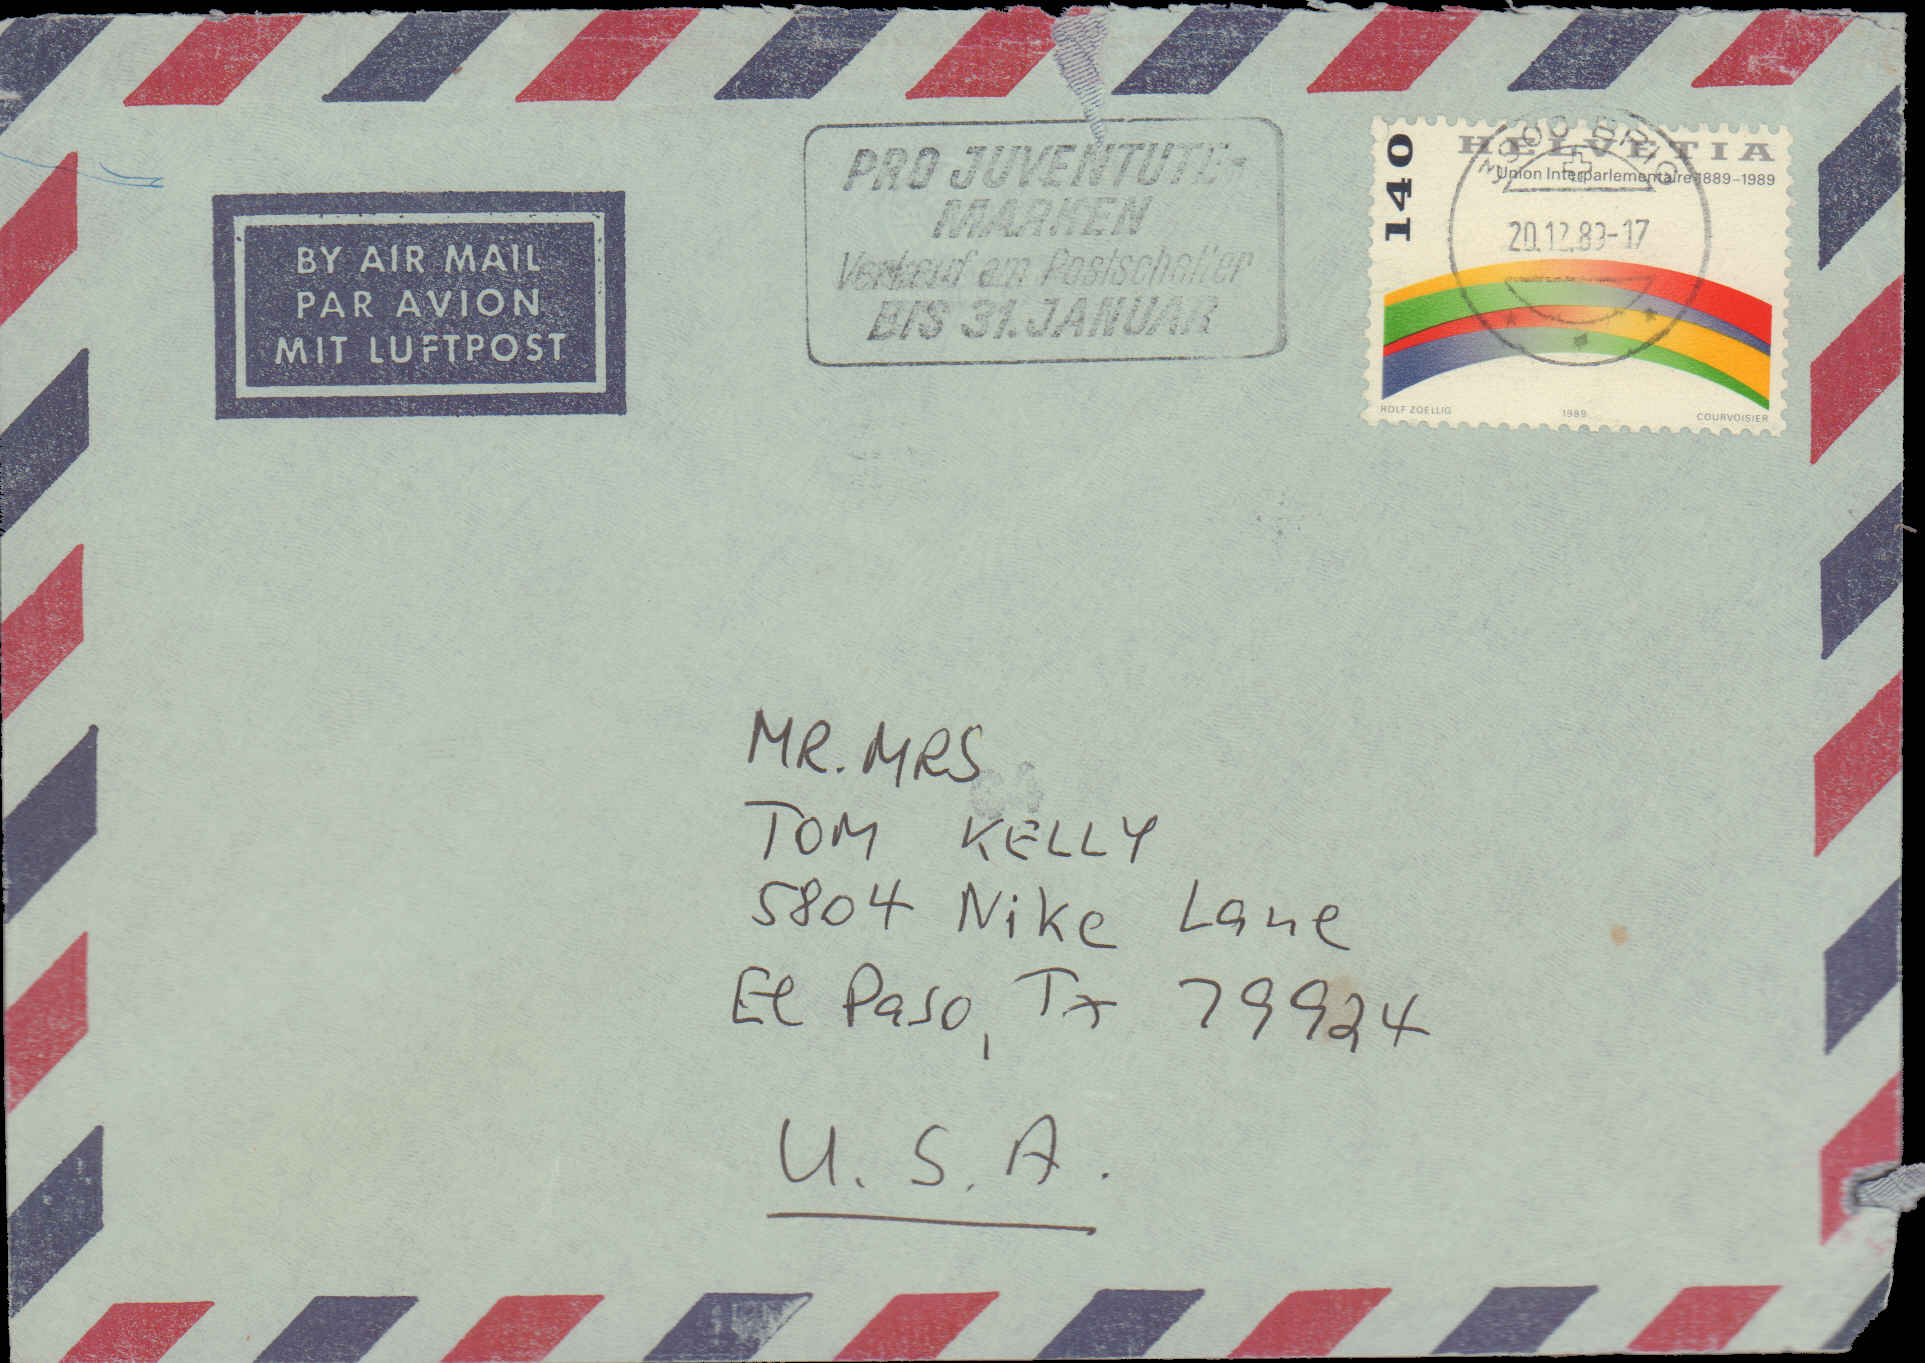 PRO JUVENTUTE-
MARKEN
Verkauf am Postschalter
BIS 31. JANUAR
140
HELVETIA
Union Interparlementaire 1889-1989
3900 BRIG
20.12.89-17
ROLF ZOELLIG
1989
COURVOISIER
BY AIR MAIL
PAR AVION
MIT LUFTPOST
MR. MRS
TOM KELLY
5804 Nike Lane
El Paso, Tx 79924
U. S. A.